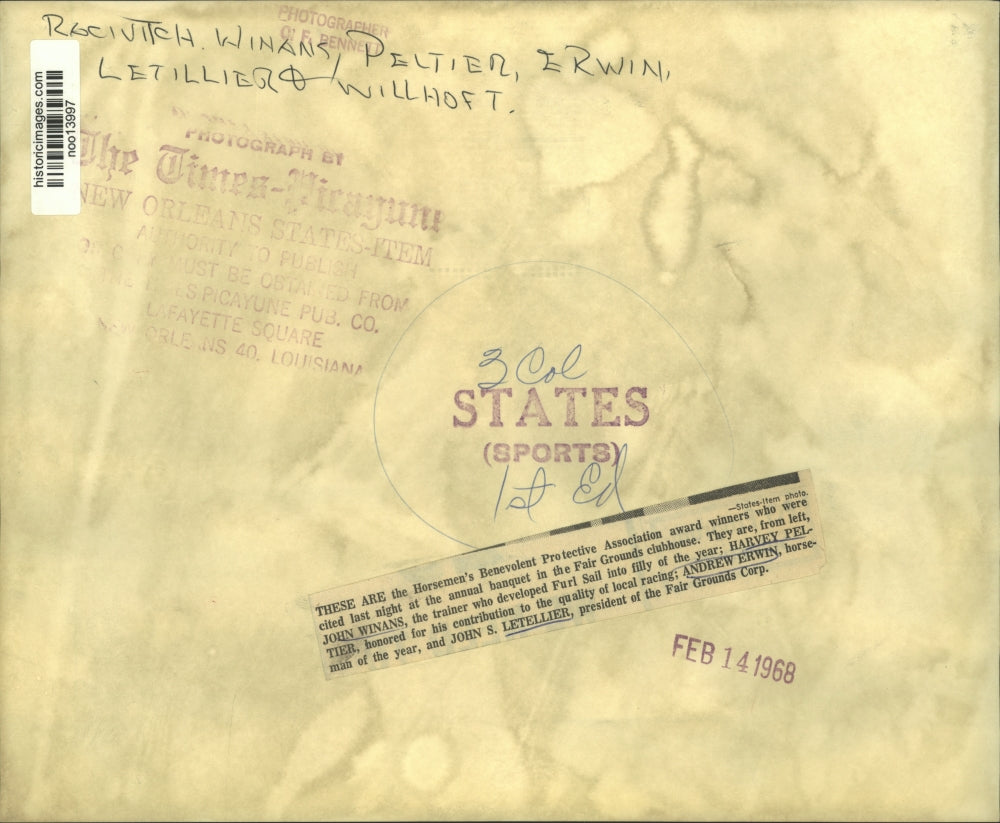 PHOTOGRAPHER
O. F. BENNETT
RACIVITCH. WINANS, PELTIER, ERWIN,
LETILLIER WILLHOFT.
historicimages.com
noo13997
PHOTOGRAPH BY
The Times-Picayune
NEW ORLEANS STATES-ITEM
AUTHORITY TO PUBLISH
MUST BE OBTAINED FROM
PICAYUNE PUB. CO.
LAFAYETTE SQUARE
ORLE NS 40, LOUISIANA
3 Col
STATES
(SPORTS)
1st Ed
—States-Item photo.
THESE ARE the Horsemen's Benevolent Protective Association award winners who were
cited last night at the annual banquet in the Fair Grounds clubhouse. They are, from left,
JOHN WINANS, the trainer who developed Furl Sail into filly of the year; HARVEY PEL-
TIER, honored for his contribution to the quality of local racing; ANDREW ERWIN, horse-
man of the year, and JOHN S. LETELLIER, president of the Fair Grounds Corp.
FEB 14 1968